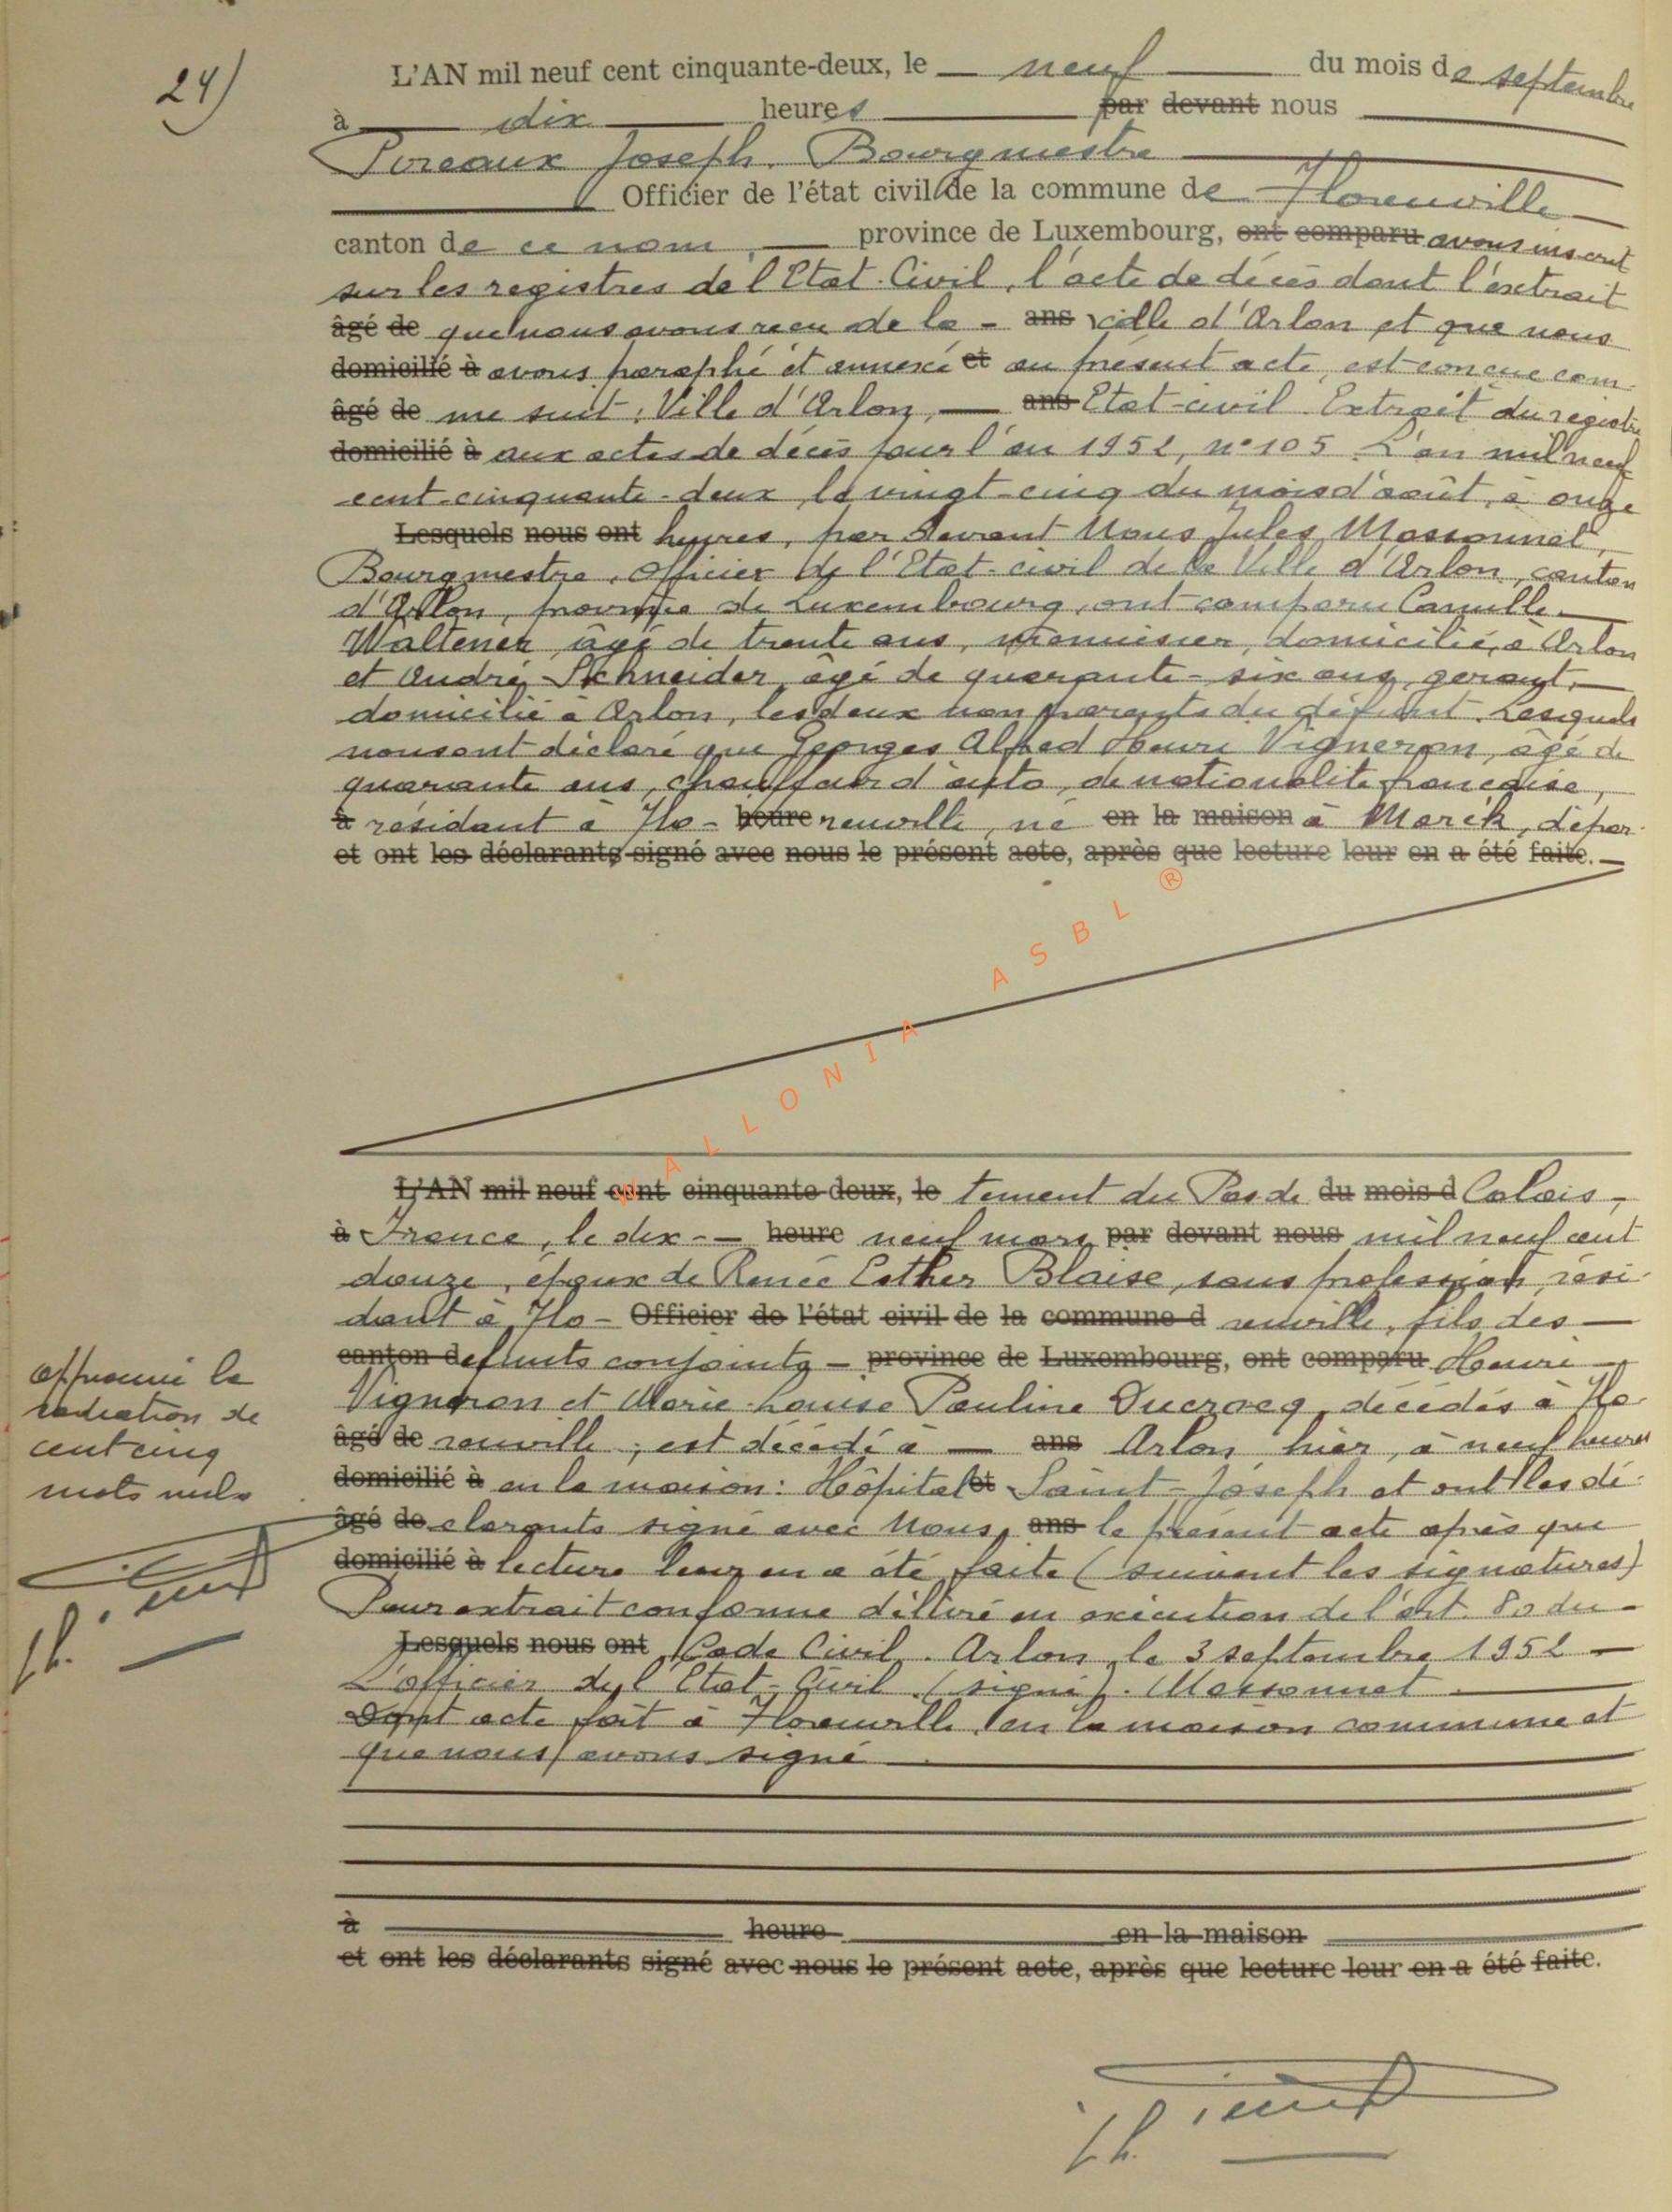 24)
L'AN mil neuf cent cinquante-deux, le neuf du mois de septembre
à dix heures par devant nous
Pireaux Joseph. Bourgmestre
Officier de l'état civil de la commune de Florenville
canton de ce nom, province de Luxembourg, ont comparu avons inscrit
sur les registres de l'Etat-Civil, l'acte de décès dont l'extrait
âgé de que nous avons reçu de la - ans ville d'Arlon et que nous
domicilié à avons paraphé et annexé et au présent acte, est conçue com-
âgé de me suit: Ville d'Arlon, — ans Etat-civil. Extrait du registre
domicilié à aux actes de décès pour l'an 1952, n° 105. L'an mil neuf
cent-cinquante-deux, le vingt-cinq du mois d'août, à onze
Lesquels nous ont heures, par devant Nous Jules Massonnet,
Bourgmestre, Officier de l'Etat-civil de la Ville d'Arlon, canton
d'Arlon, province de Luxembourg, ont comparu Camille
Waltener, âgé de trente ans, menuisier, domicilié à Arlon
et André Schneider, âgé de quarante-six ans, gérant,
domicilié à Arlon, les deux non parents du défunt. Lesquels
nous ont déclaré que Georges Alfred Henri Vigneron, âgé de
quarante ans, chauffeur d'auto, de nationalité française,
à résidant à Flo- heure renville, né en la maison à Marck, dépar-
et ont les déclarants signé avec nous le présent acte, après que lecture leur en a été faite.
WALLONIA ASBL ®
L'AN mil neuf cent cinquante-deux, le tement du Pas de du mois d Calais,
à France, le dix-- heure neuf mars par devant nous mil neuf cent
douze, époux de Renée Esther Blaise, sans profession, rési-
dant à Flo- Officier de l'état civil de la commune d renville, fils des
canton de funts conjoints - province de Luxembourg, ont comparu Henri
Vigneron et Marie-Louise Pauline Ducrocq, décédés à Flo-
âgé de renville; est décédé à — ans Arlon, hier, à neuf heures
domicilié à en la maison: Hôpital et Saint-Joseph et ont les dé-
âgé de clarants signé avec Nous, ans le présent acte après que
domicilié à lecture leur en a été faite (suivent les signatures)
Pour extrait conforme délivré en exécution de l'art. 80 du
Lesquels nous ont Code Civil. Arlon, le 3 septembre 1952 —
L'officier de l'Etat-Civil. (signé). Massonnet
Dont acte fait à Florenville en la maison commune et
que nous avons signé
approuvé la
radiation de
cent cinq
mots nuls
à heure en la maison
et ont les déclarants signé avec nous le présent acte, après que lecture leur en a été faite.